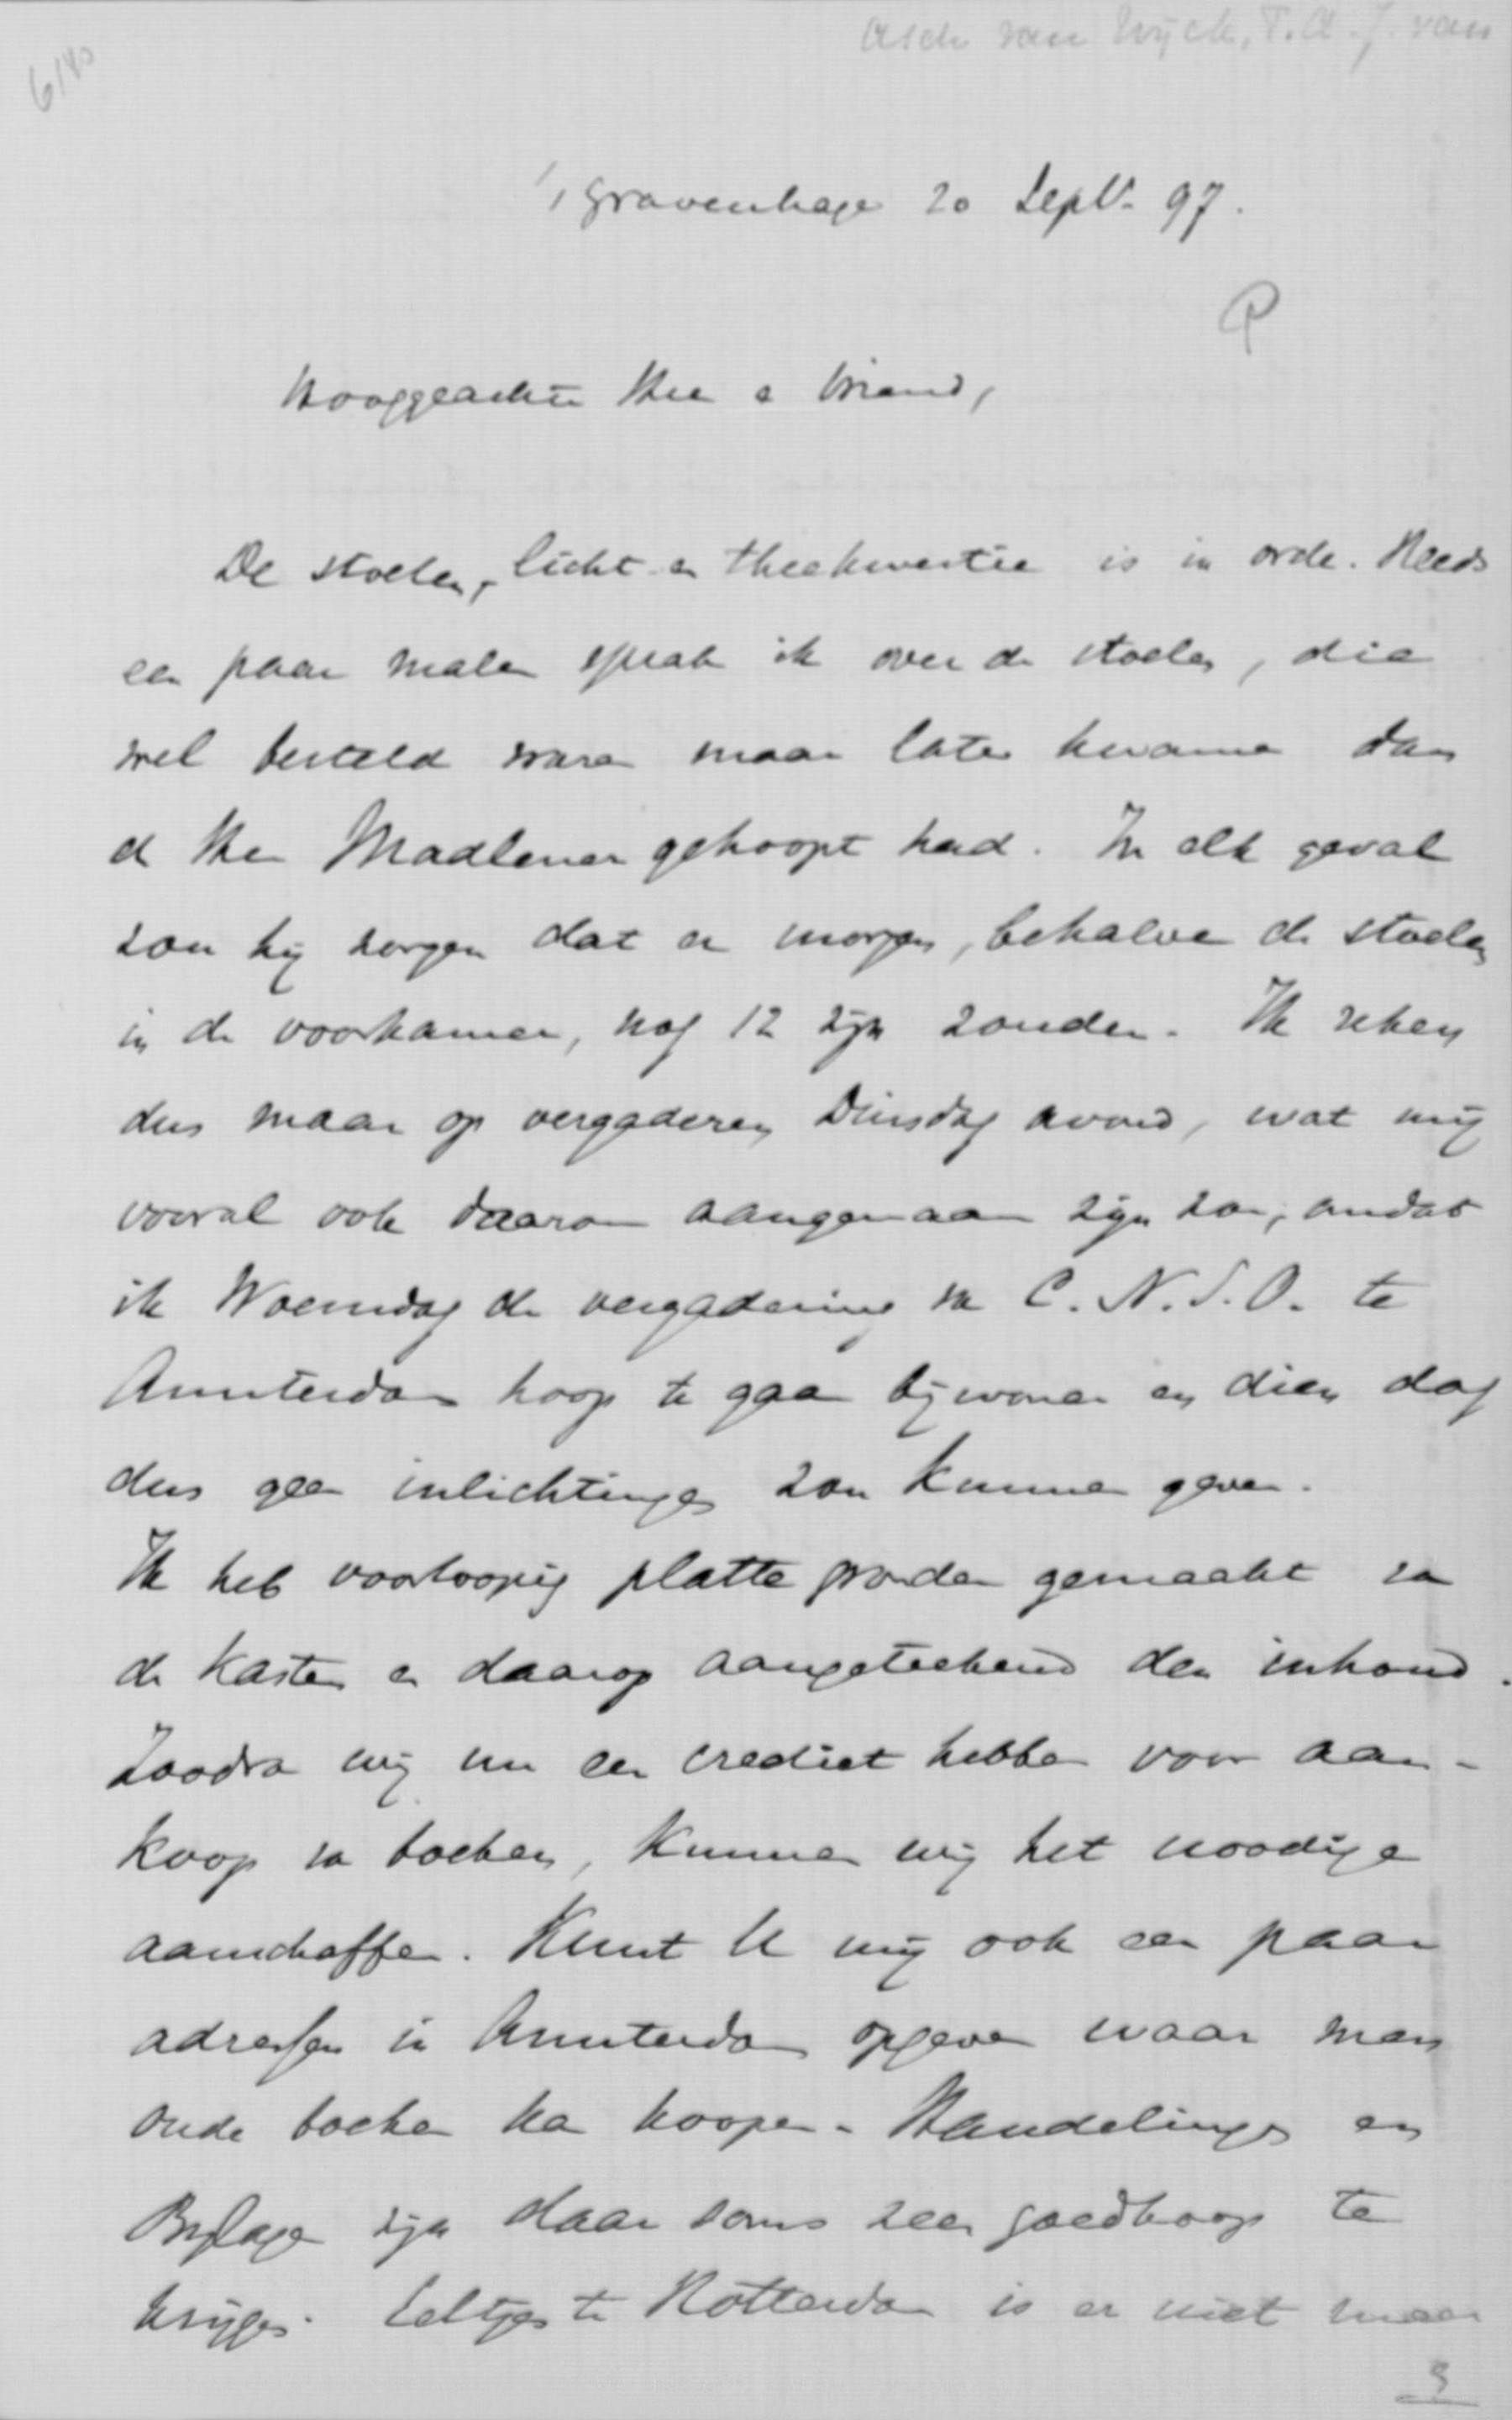 Asch van Wijck, T.A.J. van
6180
's Gravenhage 20 Sept. 97.
P
Hooggeachte Heer en Vriend,
De stoelen, licht en theekwestie is in orde. Reeds
een paar malen sprak ik over de stoelen, die
wel besteld waren maar later kwamen dan
de Heer Madlener gehoopt had. In elk geval
zou hij zorgen dat er morgen, behalve de stoelen
in de voorkamer, nog 12 zijn zouden. Ik reken
dus maar op vergaderen Dinsdag avond, wat mij
vooral ook daarom aangenaam zijn zou, omdat
ik Woensdag de vergadering van C.N.S.O. te
Amsterdam hoop te gaan bijwonen en dien dag
dus geen inlichtingen zou kunnen geven.
Ik heb voorloopig platte gronden gemaakt van
de kasten en daarop aangeteekend den inhoud.
Zoodra wij nu een crediet hebben voor aan-
koop van boeken, kunnen wij het noodige
aanschaffen. Kunt U mij ook een paar
adressen in Amsterdam opgeven waar men
oude boeken kan koopen. Handelingen en
Bijlagen zijn daar soms zeer goedkoop te
krijgen. Eeltjes te Rotterdam is er niet meer